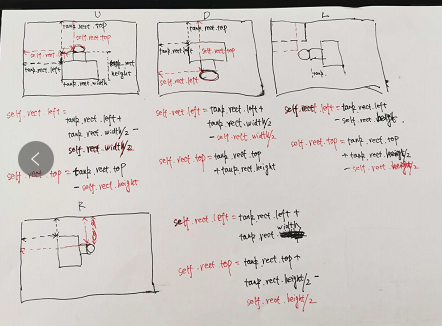 U
tank.rect.top
self.rect.top
self.rect.left
tank.rect.left
tank.rect.width
tank.rect.
height
D
tank.rect.top
tank.rect.left
self.rect.top
self.rect.left
L
tank.
self.rect.left =
tank.rect.left +
tank.rect.width/2 -
self.rect.width/2
self.rect.top = tank.rect.top
- self.rect.height
self.rect.left = tank.rect.left +
tank.rect.width/2
- self.rect.width/2
self.rect.top = tank.rect.top
+ tank.rect.height
self.rect.left = tank.rect.left
- self.rect.
self.rect.top = tank.rect.top
+ tank.rect.height/2
- self.rect.height/2
R
self.rect.left = tank.rect.left +
tank.rect.width
self.rect.top = tank.rect.top +
tank.rect.height/2 -
self.rect.height/2